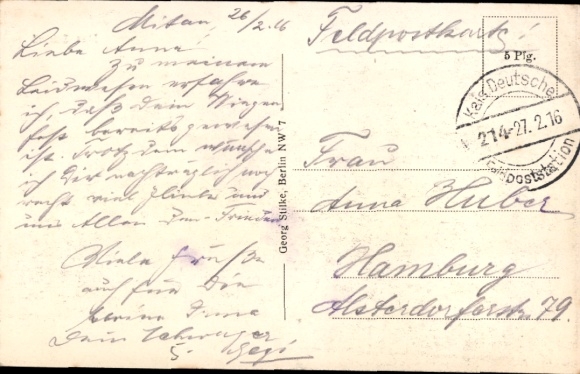 Mitau, 26/2.16
Liebe Anna!
Zu meinem
Leidwesen erfahre
ich, daß Dein Wiegen
fest bereits gewesen
ist. Trotzdem wünsche
ich Dir nachträglich noch
recht viel Glück und
uns Allen den Frieden
Viele Grüße
auch für die
kleine
Dein Schwager
Feldpostkarte!
5 Pfg.
Kais. Deutsche
214-27.2.16
Feldpoststation
Georg Stilke, Berlin NW 7
Frau
Anna Huber
Hamburg
Alsterdorferstr. 79.